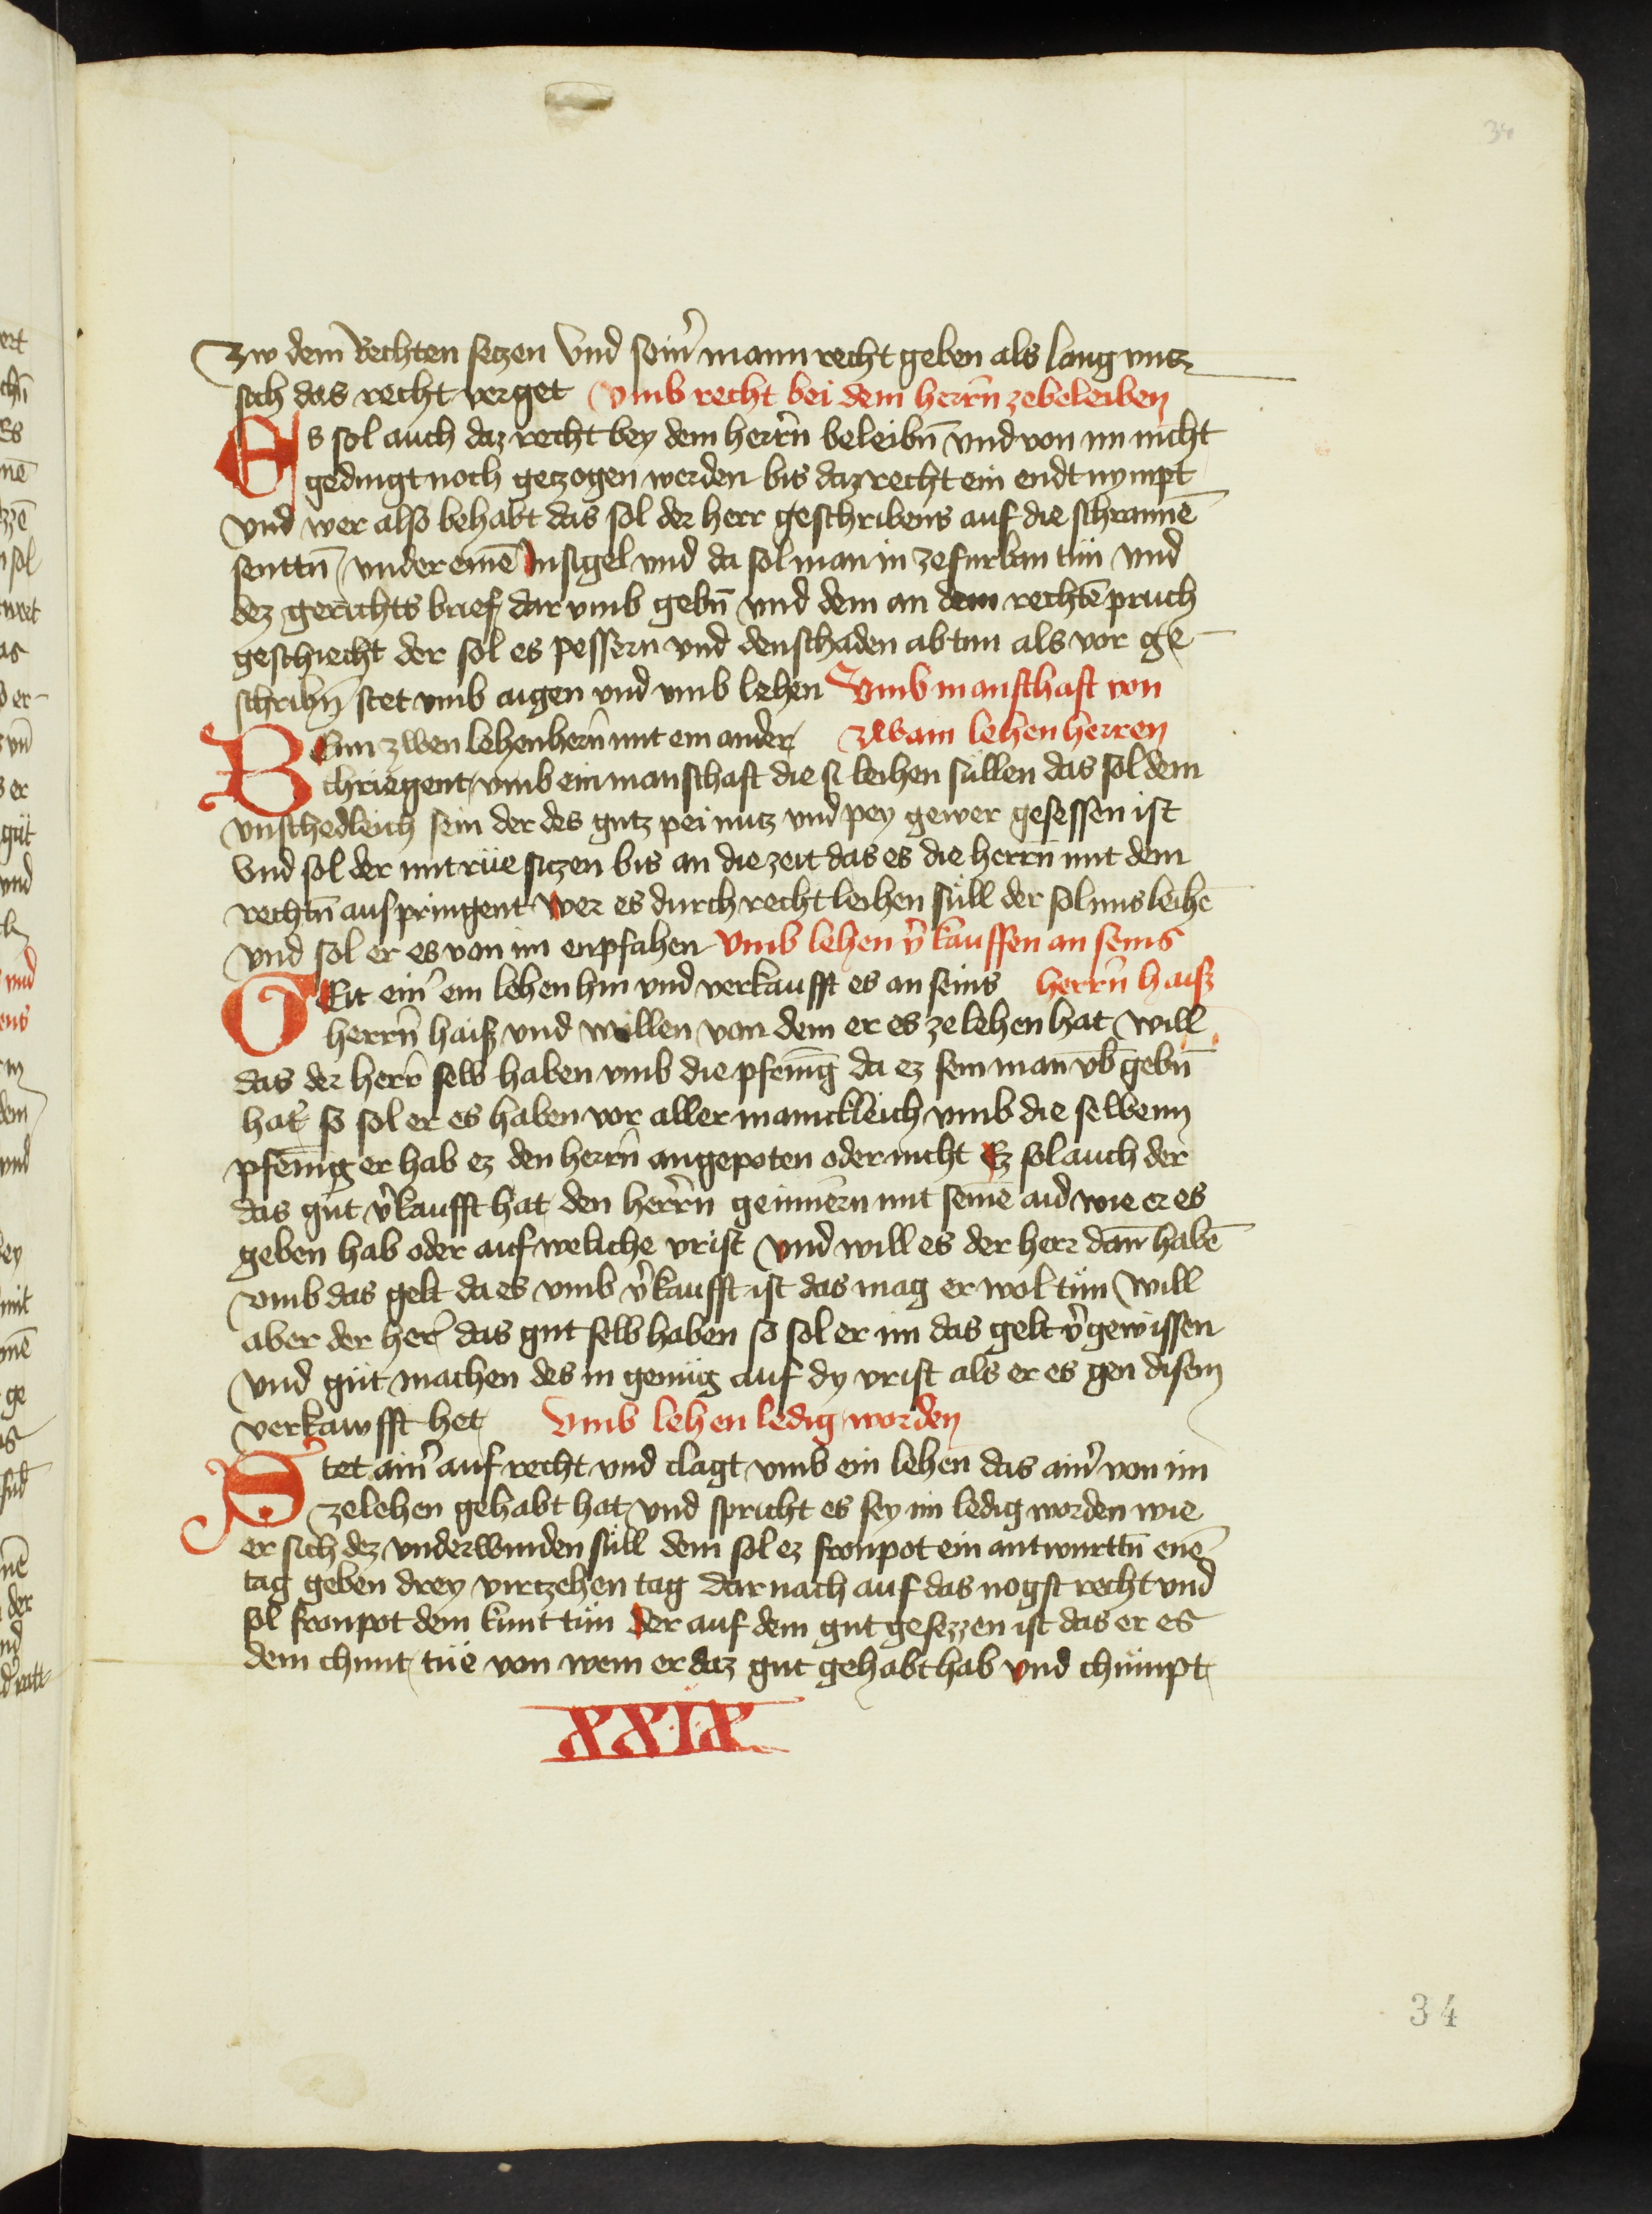 34
Zw dem Rechten setzen Vnd sein̄ mann recht geben als lang vntz
sich das recht verget Vmb recht bei dem herrn̄ zebeleiben
Es sol auch daz recht bey dem herrn̄ beleibn̄ vnd von im nicht
gedingt noch getzogen werden bis daz recht ein endt nympt
vnd wer also behabt das sol der herr geschribens auf die schrannē
senttn̄ vnder einē Insigel vnd da sol man in zefurban tün vnd
dez gerichts brief dar vmb gebn̄ vnd dem an dem rechtē pruch
geschiecht der sol es pessern vnd den schaden ab tun als vor ge-
schribn̄ stet vmb aigen vnd vmb lehen Vmb manschaft von
Wenn zwen lehenherrn̄ mit ein ander zwain lehen herren
chriegent vmb ein manschaft die si leihen süllen das sol dem
vnschedleich sein der des gutz pei nutz vnd pey gewer gesessen ist
Vnd sol der mit rüe sitzen bis an die zeit das es die herrn̄ mit dem
rechtn̄ aus pringent Wer es durch recht leihen süll der sol ims leihē
vnd sol er es von im enpfahen Vmb lehen v̄kauffen an seins
Geit ein̄ ein lehen hin vnd verkaufft es an seins herrn̄ haiß
herrn̄ haiß vnd willen von dem er es ze lehen hat Will
das der herr̄ selb haben vmb die pfenīg da ez sein man vb̄ gebn̄
hat so sol er es haben vor aller manickleich vmb die selbenn
pfenīg er hab ez den herrn̄ angepoten oder nicht Ez sol auch der
das gut v̄kaufft hat den herrn̄ geinnern mit seinē aid wie er es
geben hab oder auf weliche vrist Vnd will es der herr dan̄ habē
vmb das gelt da es vmb v̄kaufft ist das mag er wol tün Will
aber der her̄ das gut selb haben so sol er im das gelt v̄gewissen
Vnd güt machen des in genüg auf dy vrist als er es gen disem
verkawfft het Vmb lehen ledig worden
Stet ain̄ auf recht vnd clagt vmb ein lehen das ain̄ von im
zelehen gehabt hat vnd spricht es sey im ledig worden wie
er sich dez vnderwinden süll dem sol ez fronpot ein antwurttn̄ enē
tag geben drey virtzehen tag dar nach auf das nogst recht vnd
sol fronpot dem kunt tün Der auf dem gut gesezzen ist das er es
dem chunt tüe von wem er daz gut gehabt hab Vnd chümpt
XXIX
34